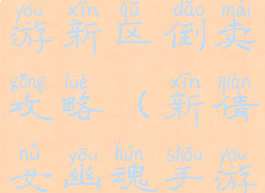 yóu xīn qū dǎo mài
游新区倒卖
gōng lüè xīn qiàn
攻略(新倩
nǚ yōu hún shǒu yóu
女幽魂手游